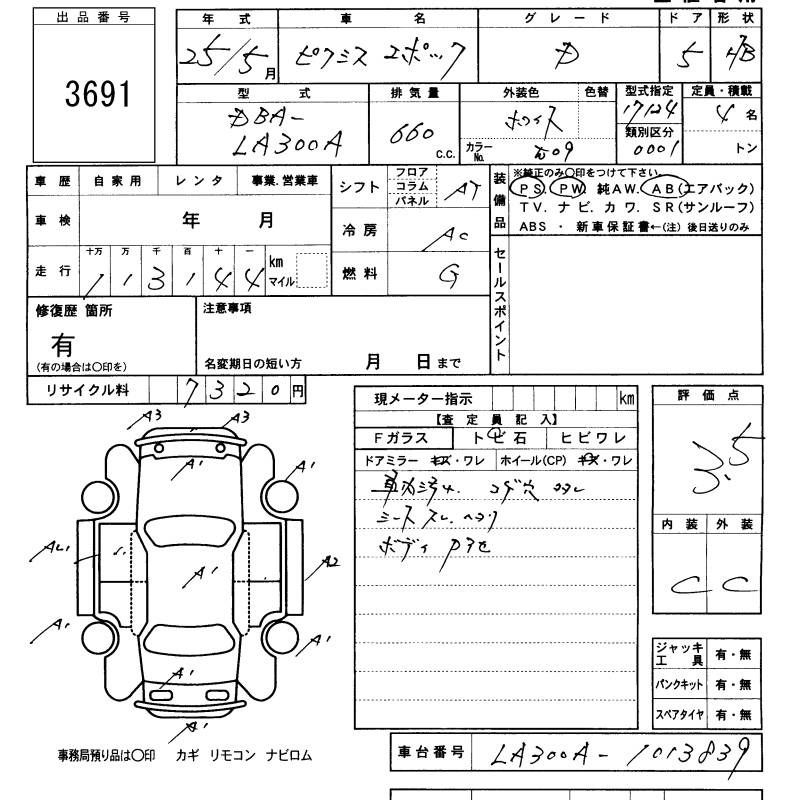 出品番号
3691
年式 車名 グレード ドア 形状
25/5月 ピクシス エポック D 5 H/B
型式 排気量 外装色 色替 型式指定 定員・積載
DBA- LA300A 660 C.C. ホワイト 17124 4名
カラーNo. 類別区分 0001 トン
車歴 自家用 レンタ 事業.営業車
シフト フロア コラム パネル AT
装備品 ※純正のみ〇印をつけて下さい。
PS PW 純AW. AB(エアバック)
TV. ナビ. カワ. SR(サンルーフ)
ABS ・ 新車保証書←(注) 後日送りのみ
車検 年 月
冷房 AC
走行 十万 万 千 百 十 一
1 1 3 1 4 4 km マイル
燃料 G
セールスポイント
修復歴 箇所
有
(有の場合は〇印を)
注意事項
名変期日の短い方 月 日まで
リサイクル料 7320円
現メーター指示 km
【査定員記入】
Fガラス トビ石 ヒビワレ
ドアミラー キズ・ワレ ホイール(CP) キズ・ワレ
コゲ穴
シート スレ.
ボディ
評価点
3.5
内装 外装
C C
A3 A3
A1 A1
A1 A2
A1
A1 A1
A1
A1
ジャッキ 工具 有・無
パンクキット 有・無
スペアタイヤ 有・無
事務局預り品は〇印 カギ リモコン ナビロム
車台番号 LA300A-1013839